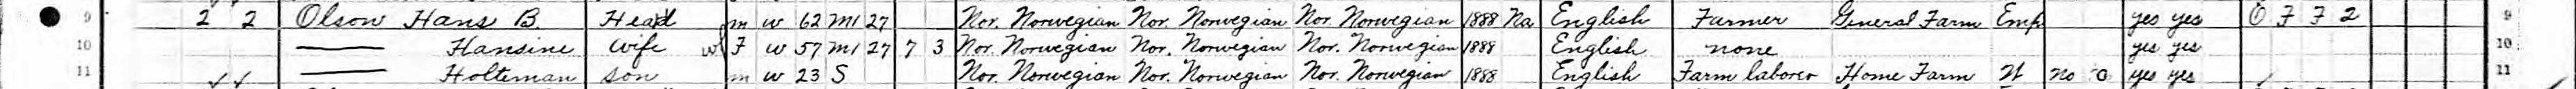 9 2 2 Olson Hans B. Head m w 62 M1 27 Nor. Norwegian Nor. Norwegian Nor. Norwegian 1888 Na English Farmer General Farm Emp yes yes O F F 2 9
10 —— Hansine Wife F w 57 M1 27 7 3 Nor. Norwegian Nor. Norwegian Nor. Norwegian 1888 English none yes yes 10
11 —— Holteman son m w 23 S Nor. Norwegian Nor. Norwegian Nor. Norwegian 1888 English Farm laborer Home Farm W no 0 yes yes 11